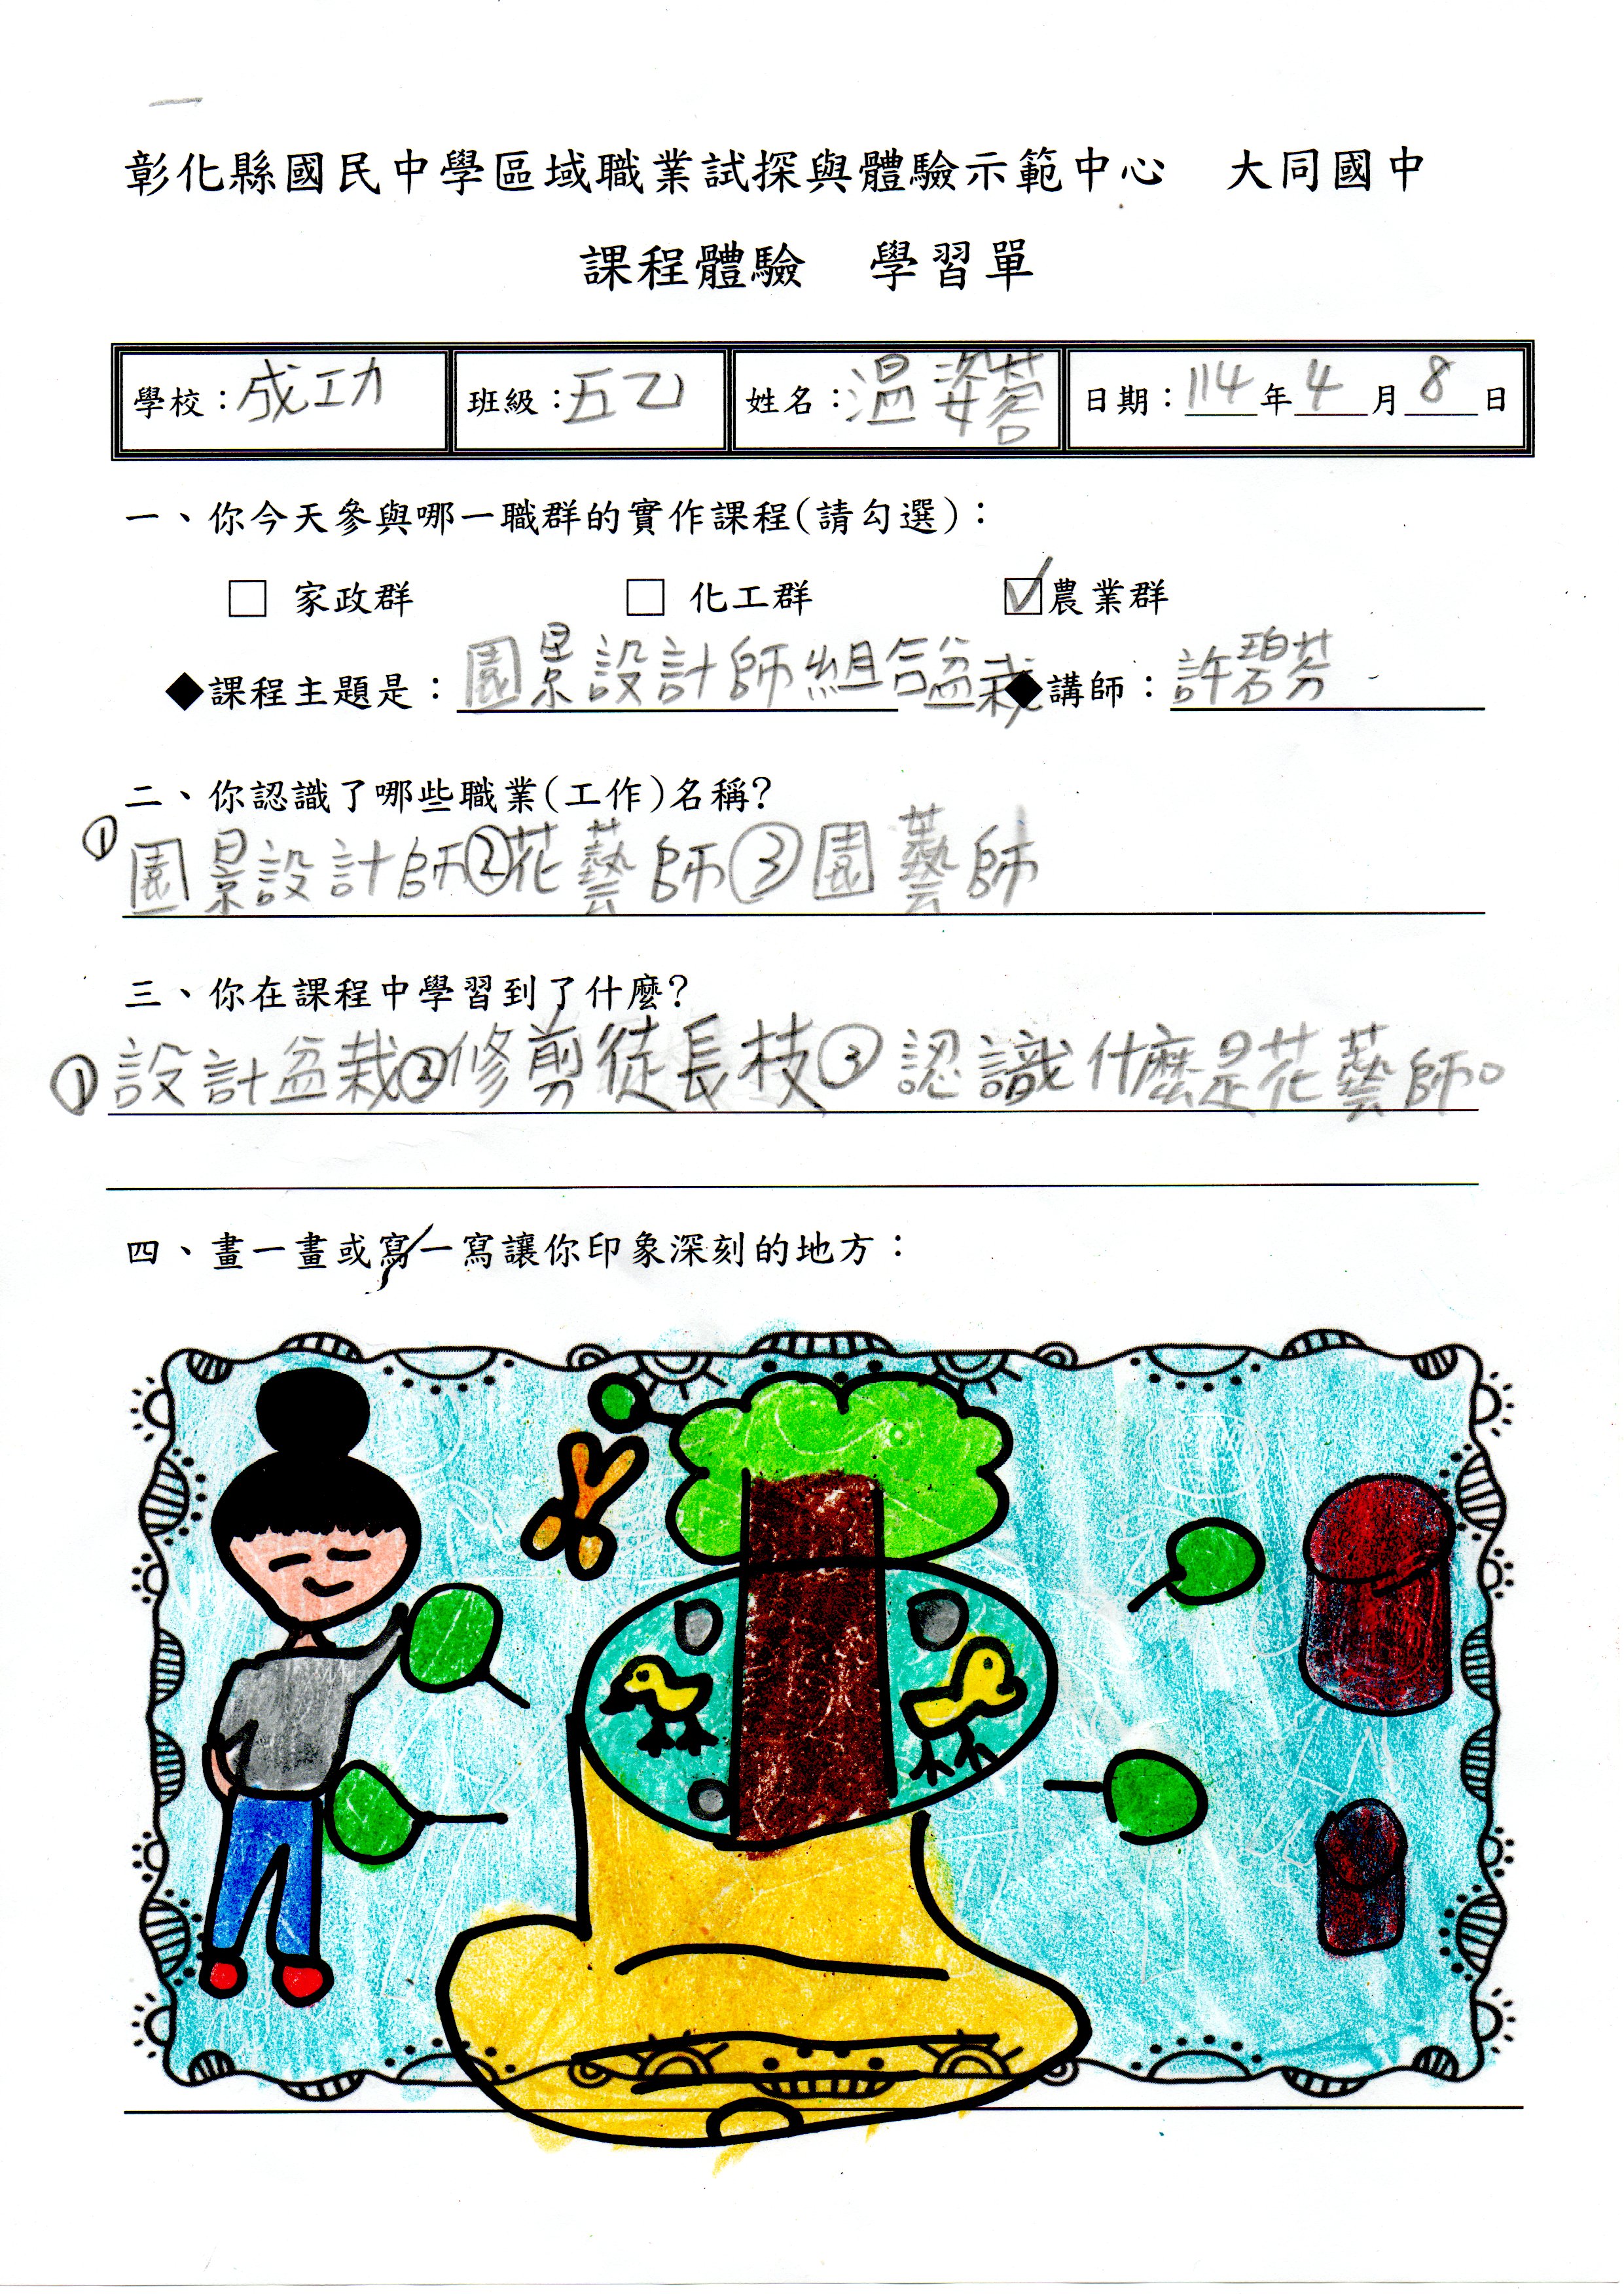 一
彰化縣國民中學區域職業試探與體驗示範中心 大同國中
課程體驗 學習單
學校：成功 班級：五乙 姓名：温姿蓉 日期：114年4月8日
一、你今天參與哪一職群的實作課程(請勾選)：
□ 家政群 □ 化工群 ☑農業群
◆課程主題是：園景設計師組合盆栽 ◆講師：許碧芬
二、你認識了哪些職業(工作)名稱?
①園景設計師②花藝師③園藝師
三、你在課程中學習到了什麼?
①設計盆栽②修剪徒長枝③認識什麼是花藝師。
四、畫一畫或寫一寫讓你印象深刻的地方：